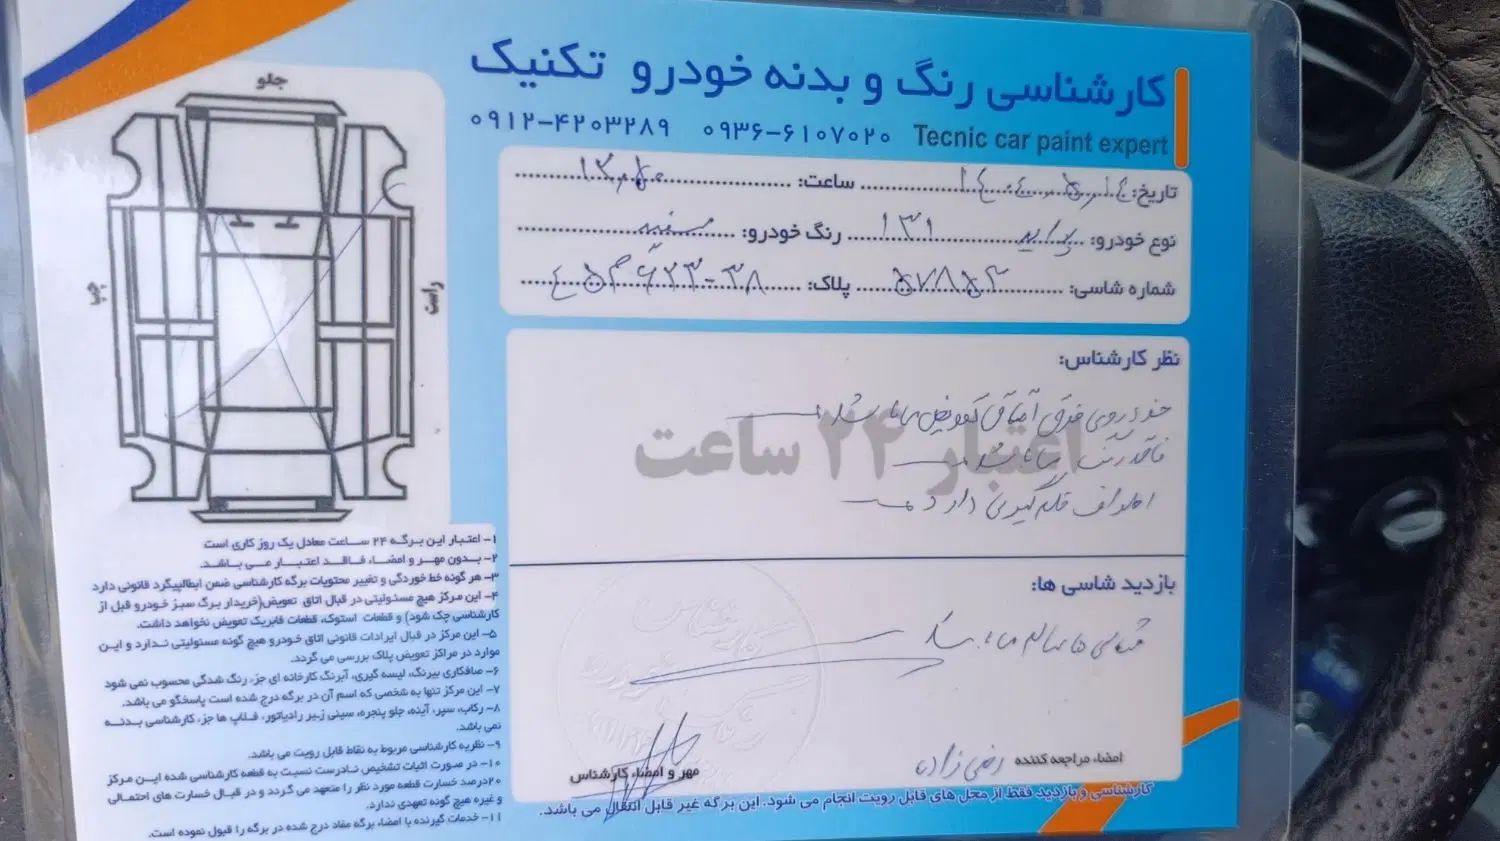 کارشناسی رنگ و بدنه خودرو تکنیک
Tecnic car paint expert ۰۹۳۶-۶۱۰۷۰۲۰ ۰۹۱۲-۴۲۰۳۲۸۹
تاریخ: ساعت:
نوع خودرو: پراید ۱۳۱ رنگ خودرو: سفید
شماره شاسی: پلاک:
نظر کارشناس:
خودروی فوق اتاق تعویض می باشد
فاقد رنگ می باشد
اطراف لکه گیری دارد
اعتبار ۲۴ ساعت
بازدید شاسی ها:
شاسی ها سالم می باشد
امضاء مراجعه کننده
مهر و امضاء کارشناس
کارشناسی و بازدید فقط از محل های قابل رویت انجام می شود. این برگه غیر قابل انتقال می باشد.
جلو
چپ
راست
۱- اعتبار این برگه ۲۴ ساعت معادل یک روز کاری است
۲- بدون مهر و امضاء فاقد اعتبار می باشد.
۳- هر گونه خط خوردگی و تغییر محتویات برگه کارشناسی ضمن ابطالپیگرد قانونی دارد
۴- این مرکز هیچ مسئولیتی در قبال اتاق تعویض(خریدار برگ سبز خودرو قبل از
کارشناسی چک شود) و قطعات استوک، قطعات فابریک تعویض نخواهد داشت.
۵- این مرکز در قبال ایرادات قانونی اتاق خودرو هیچ گونه مسئولیتی ندارد و این
موارد در مراکز تعویض پلاک بررسی می گردد.
۶- صافکاری بیرنگ، لیسه گیری، آبرنگ کارخانه ای جز، رنگ شدگی محسوب نمی شود
۷- این مرکز تنها به شخصی که اسم آن در برگه درج شده است پاسخگو می باشد.
۸- رکاب، سپر، آینه، جلو پنجره، سینی زیر رادیاتور، فلاپ ها جز، کارشناسی بدنه
نمی باشد.
۹- نظریه کارشناسی مربوط به نقاط قابل رویت می باشد.
۱۰- در صورت اثبات تشخیص نادرست نسبت به قطعه کارشناسی شده این مرکز
۲۰درصد خسارت قطعه مورد نظر را متعهد می گردد و در قبال خسارت های احتمالی
و غیره هیچ گونه تعهدی ندارد.
۱۱- خدمات گیرنده با امضاء برگه مفاد درج شده در برگه را قبول نموده است.